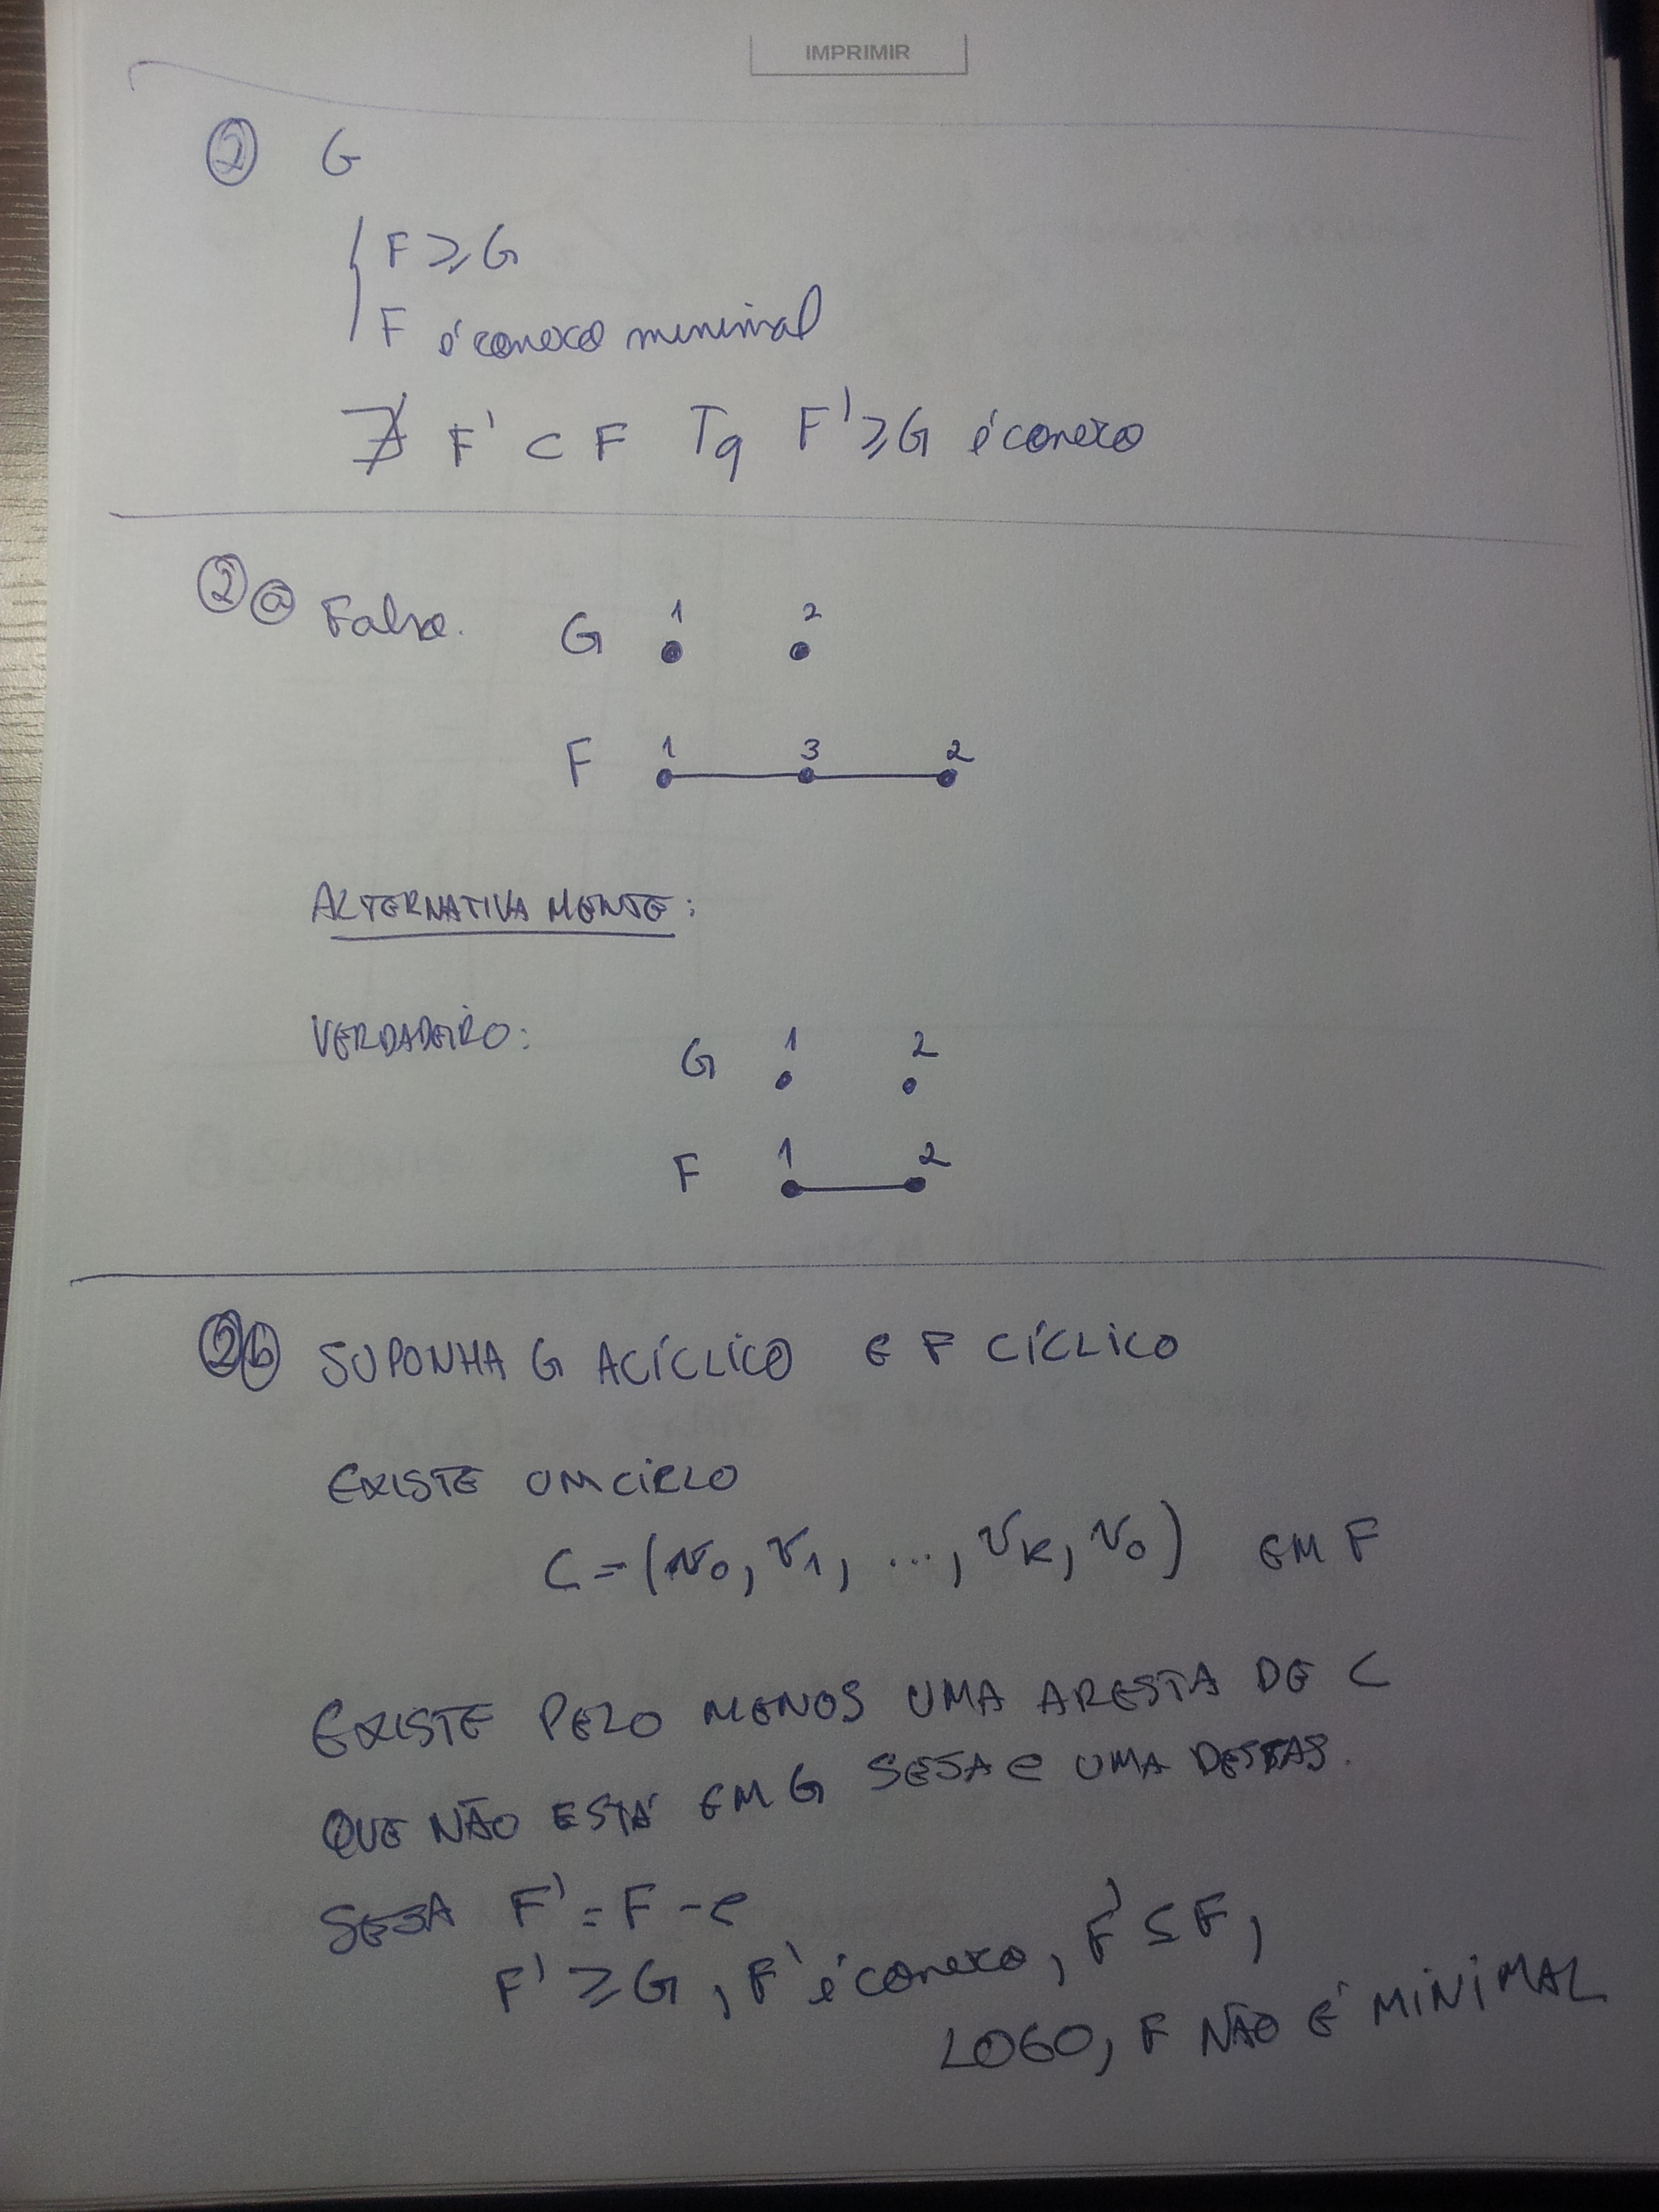 IMPRIMIR
② G
F ⩾ G
F é conexo minimal
∄ F' ⊂ F Tq F' ⩾ G é conexo
② ⓐ Falso. G 1 2
F 1 3 2
ALTERNATIVAMENTE:
VERDADEIRO: G 1 2
F 1 2
②ⓑ SUPONHA G ACÍCLICO E F CÍCLICO
EXISTE UM CICLO
C = (v₀, v₁, ..., vₖ, v₀) EM F
EXISTE PELO MENOS UMA ARESTA DE C
QUE NÃO ESTÁ EM G SEJA e UMA DESTAS.
SEJA F' = F - e
F' ⩾ G, F' é conexo, F' ⊆ F,
LOGO, F NÃO É MINIMAL